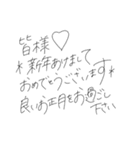 皆様♡
*新年あけまして
おめでとうございます*
良いお正月をお過ごし
ください